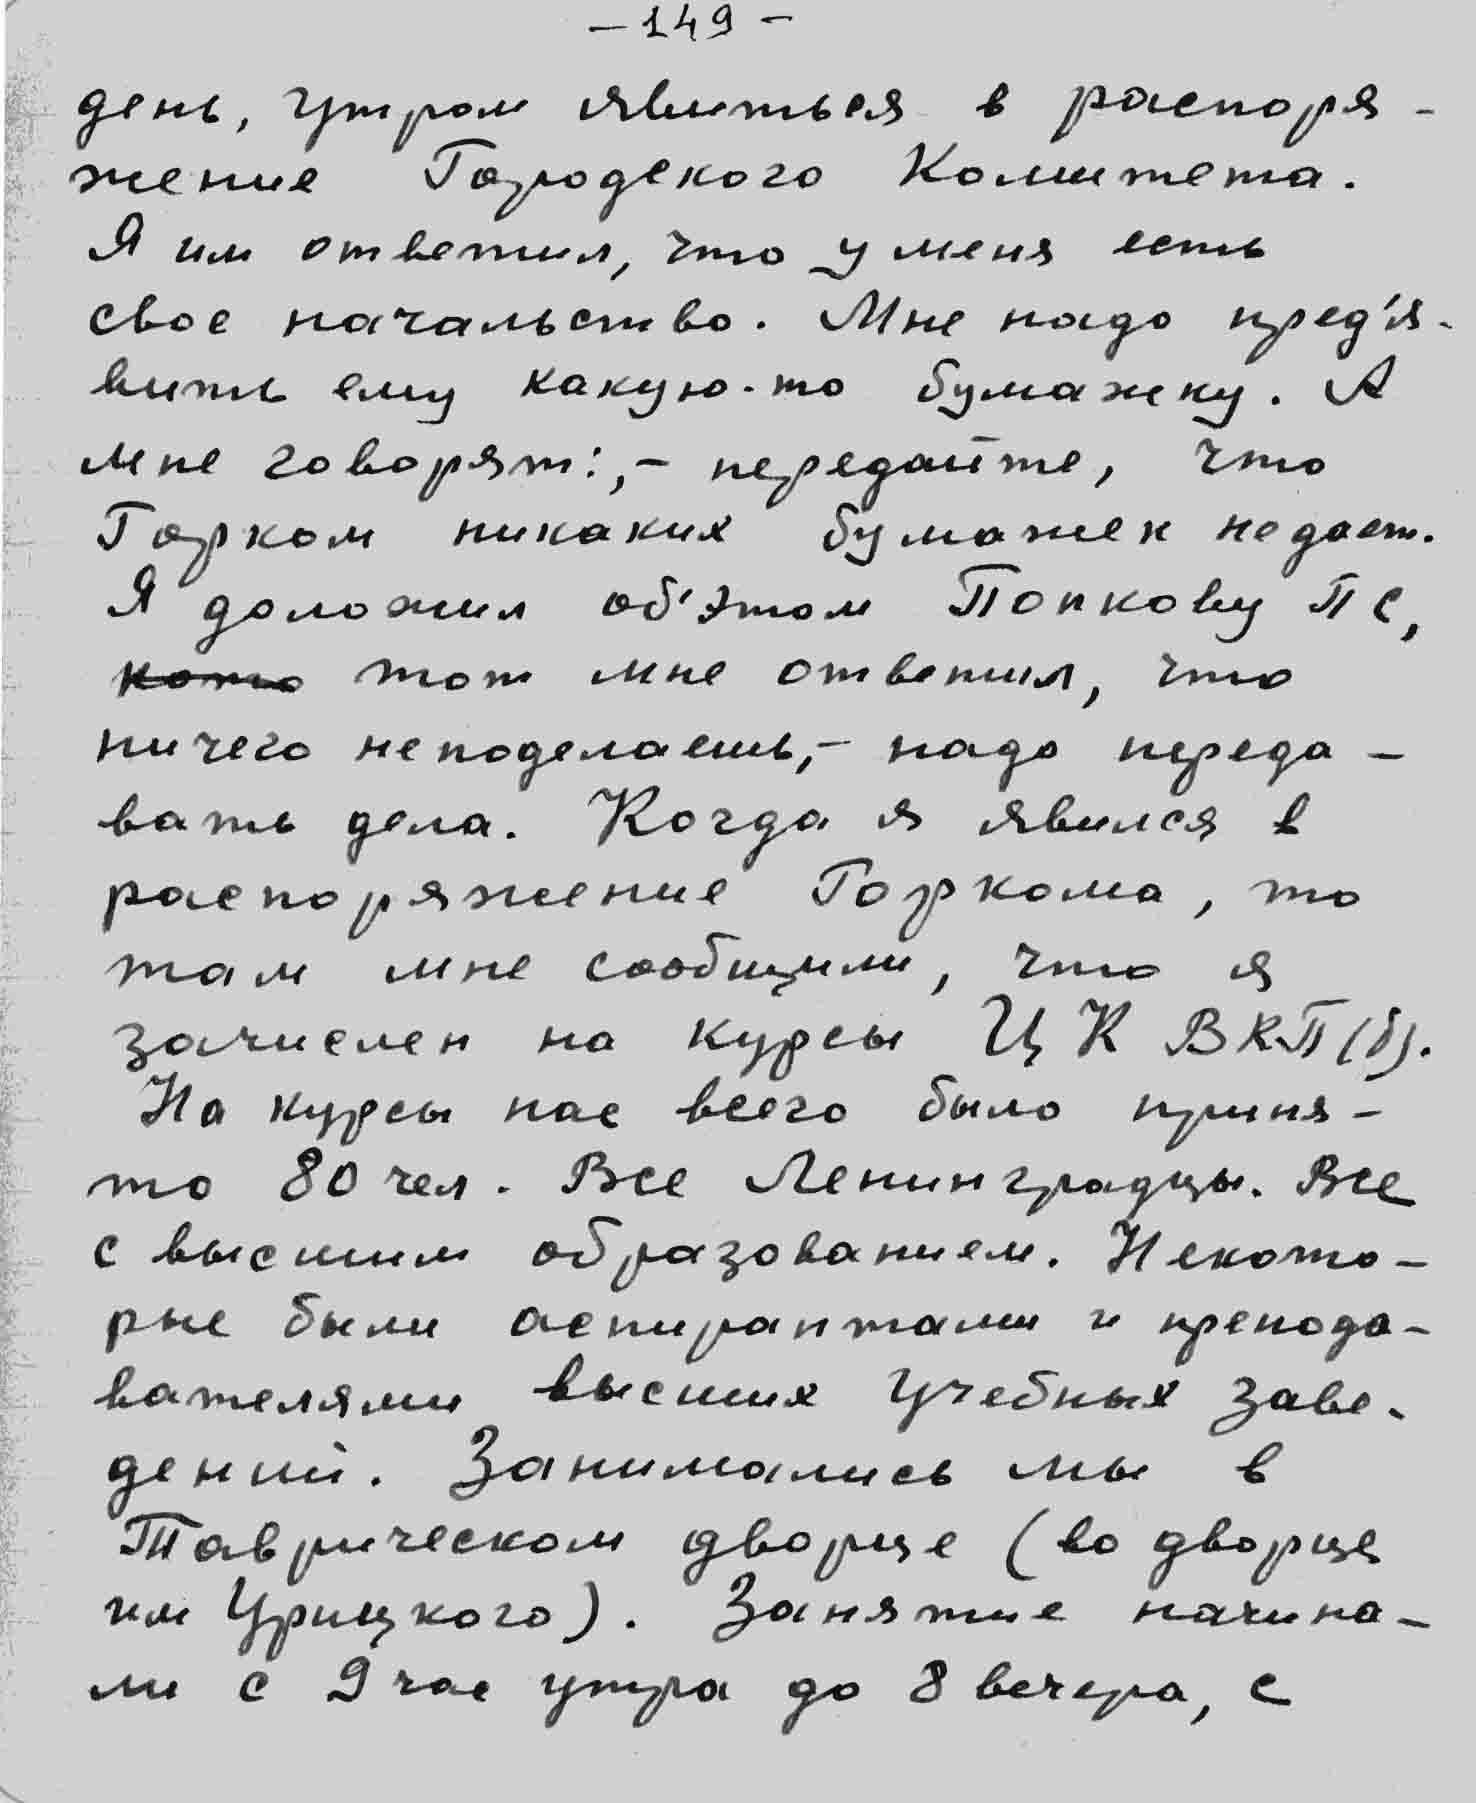 – 149 –
день, утром явиться в распоря-
жение Городского Комитета.
Я им ответил, что у меня есть
свое начальство. Мне надо пред'я-
вить ему какую-то бумажку. А
мне говорят:,– передайте, что
Горком никаких бумажек не дает.
Я доложил об'этом Попкову П С,
кото тот мне ответил, что
ничего неподелаешь,– надо переда-
вать дела. Когда я явился в
распоряжение Горкома, то
там мне сообщили, что я
зачислен на курсы Ц К ВКП(б).
На курсы нас всего было приня-
то 80 чел. Все Ленинградцы. Все
с высшим образованием. Некото-
рые были аспирантами и препода-
вателями высших учебных заве-
дений. Занимались мы в
Таврическом дворце (во дворце
им Урицкого). Занятие начина-
ли с 9 час утра до 8 вечера, с